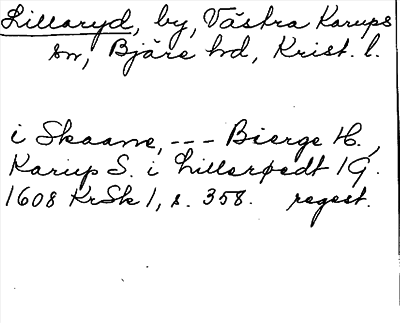 Lillaryd, by, Västra Karups
sn, Bjäre hd, Krist. l.
i Skaane, --- Bierge H.,
Karup S. i Lillerødt 1G.
1608 KrSk 1, s. 358. regest.